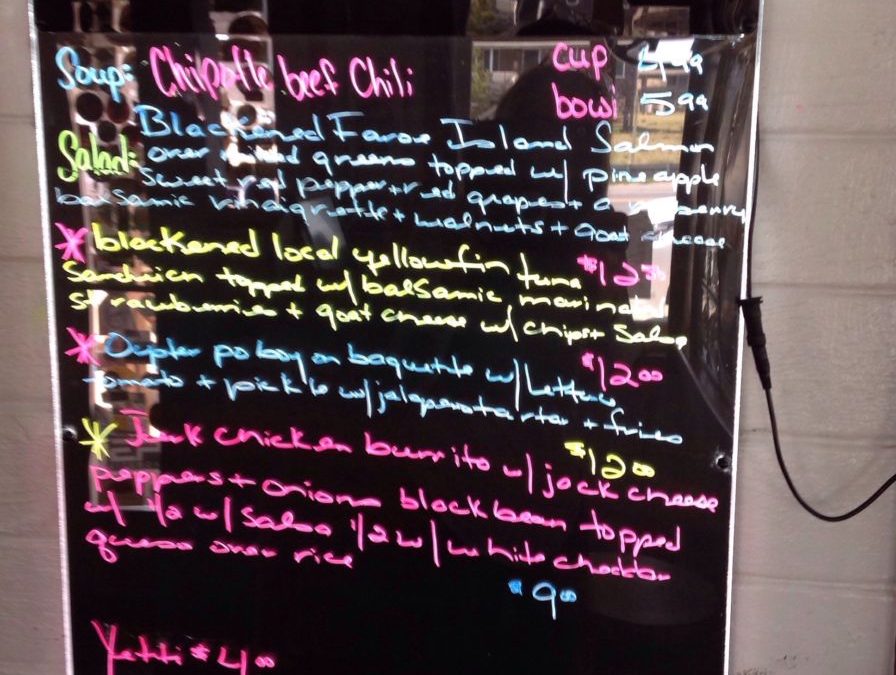 Soup: Chipotle beef Chili cup 4.99
bowl 5.99
Blackened Faroe Island Salmon
Salad: over mixed greens topped w/ pineapple
Sweet red pepper + red grapes +
balsamic vinaigrette + walnuts + goat cheese
* blackened local yellowfin tuna $12.50
Sandwich topped w/ balsamic marinated
strawburries + goat cheese w/ chips + Salsa
* Oyster po boy on baguette w/ lettuce $12.00
tomato + pickle w/ jalapeno tartar + fries
* Jerk chicken burrito w/ jack cheese $12.00
peppers + onions black bean topped
w/ 1/2 w/ salsa 1/2 w/ white cheddar
queso over rice
$9.00
Yetti $4.00